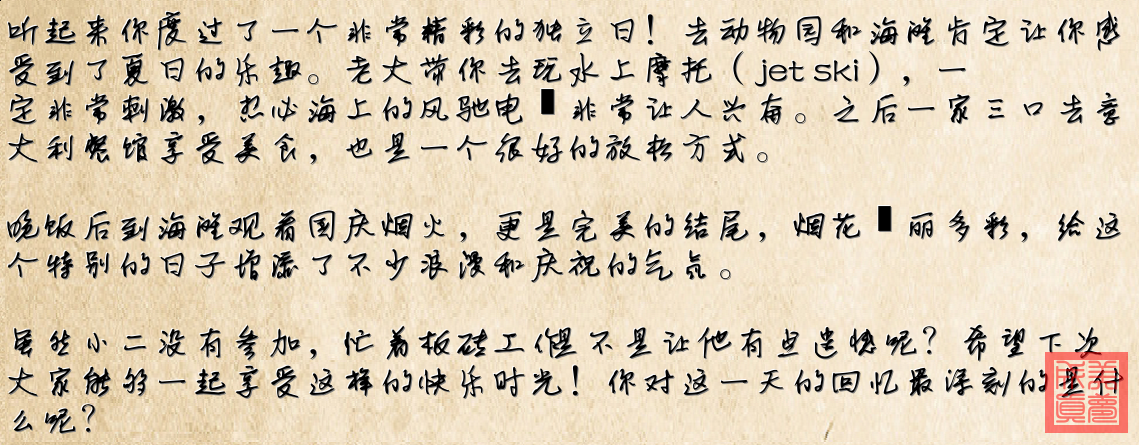 听起来你度过了一个非常精彩的独立日！去动物园和海滩肯定让你感
受到了夏日的乐趣。老大带你去玩水上摩托（jet ski），一
定非常刺激，想必海上的风驰电 非常让人兴奋。之后一家三口去意
大利餐馆享受美食，也是一个很好的放松方式。
晚饭后到海滩观看国庆烟火，更是完美的结尾，烟花 丽多彩，给这
个特别的日子增添了不少浪漫和庆祝的气氛。
虽然小二没有参加，忙着板砖工作是不是让他有点遗憾呢？希望下次
大家能够一起享受这样的快乐时光！你对这一天的回忆最深刻的是什
么呢？